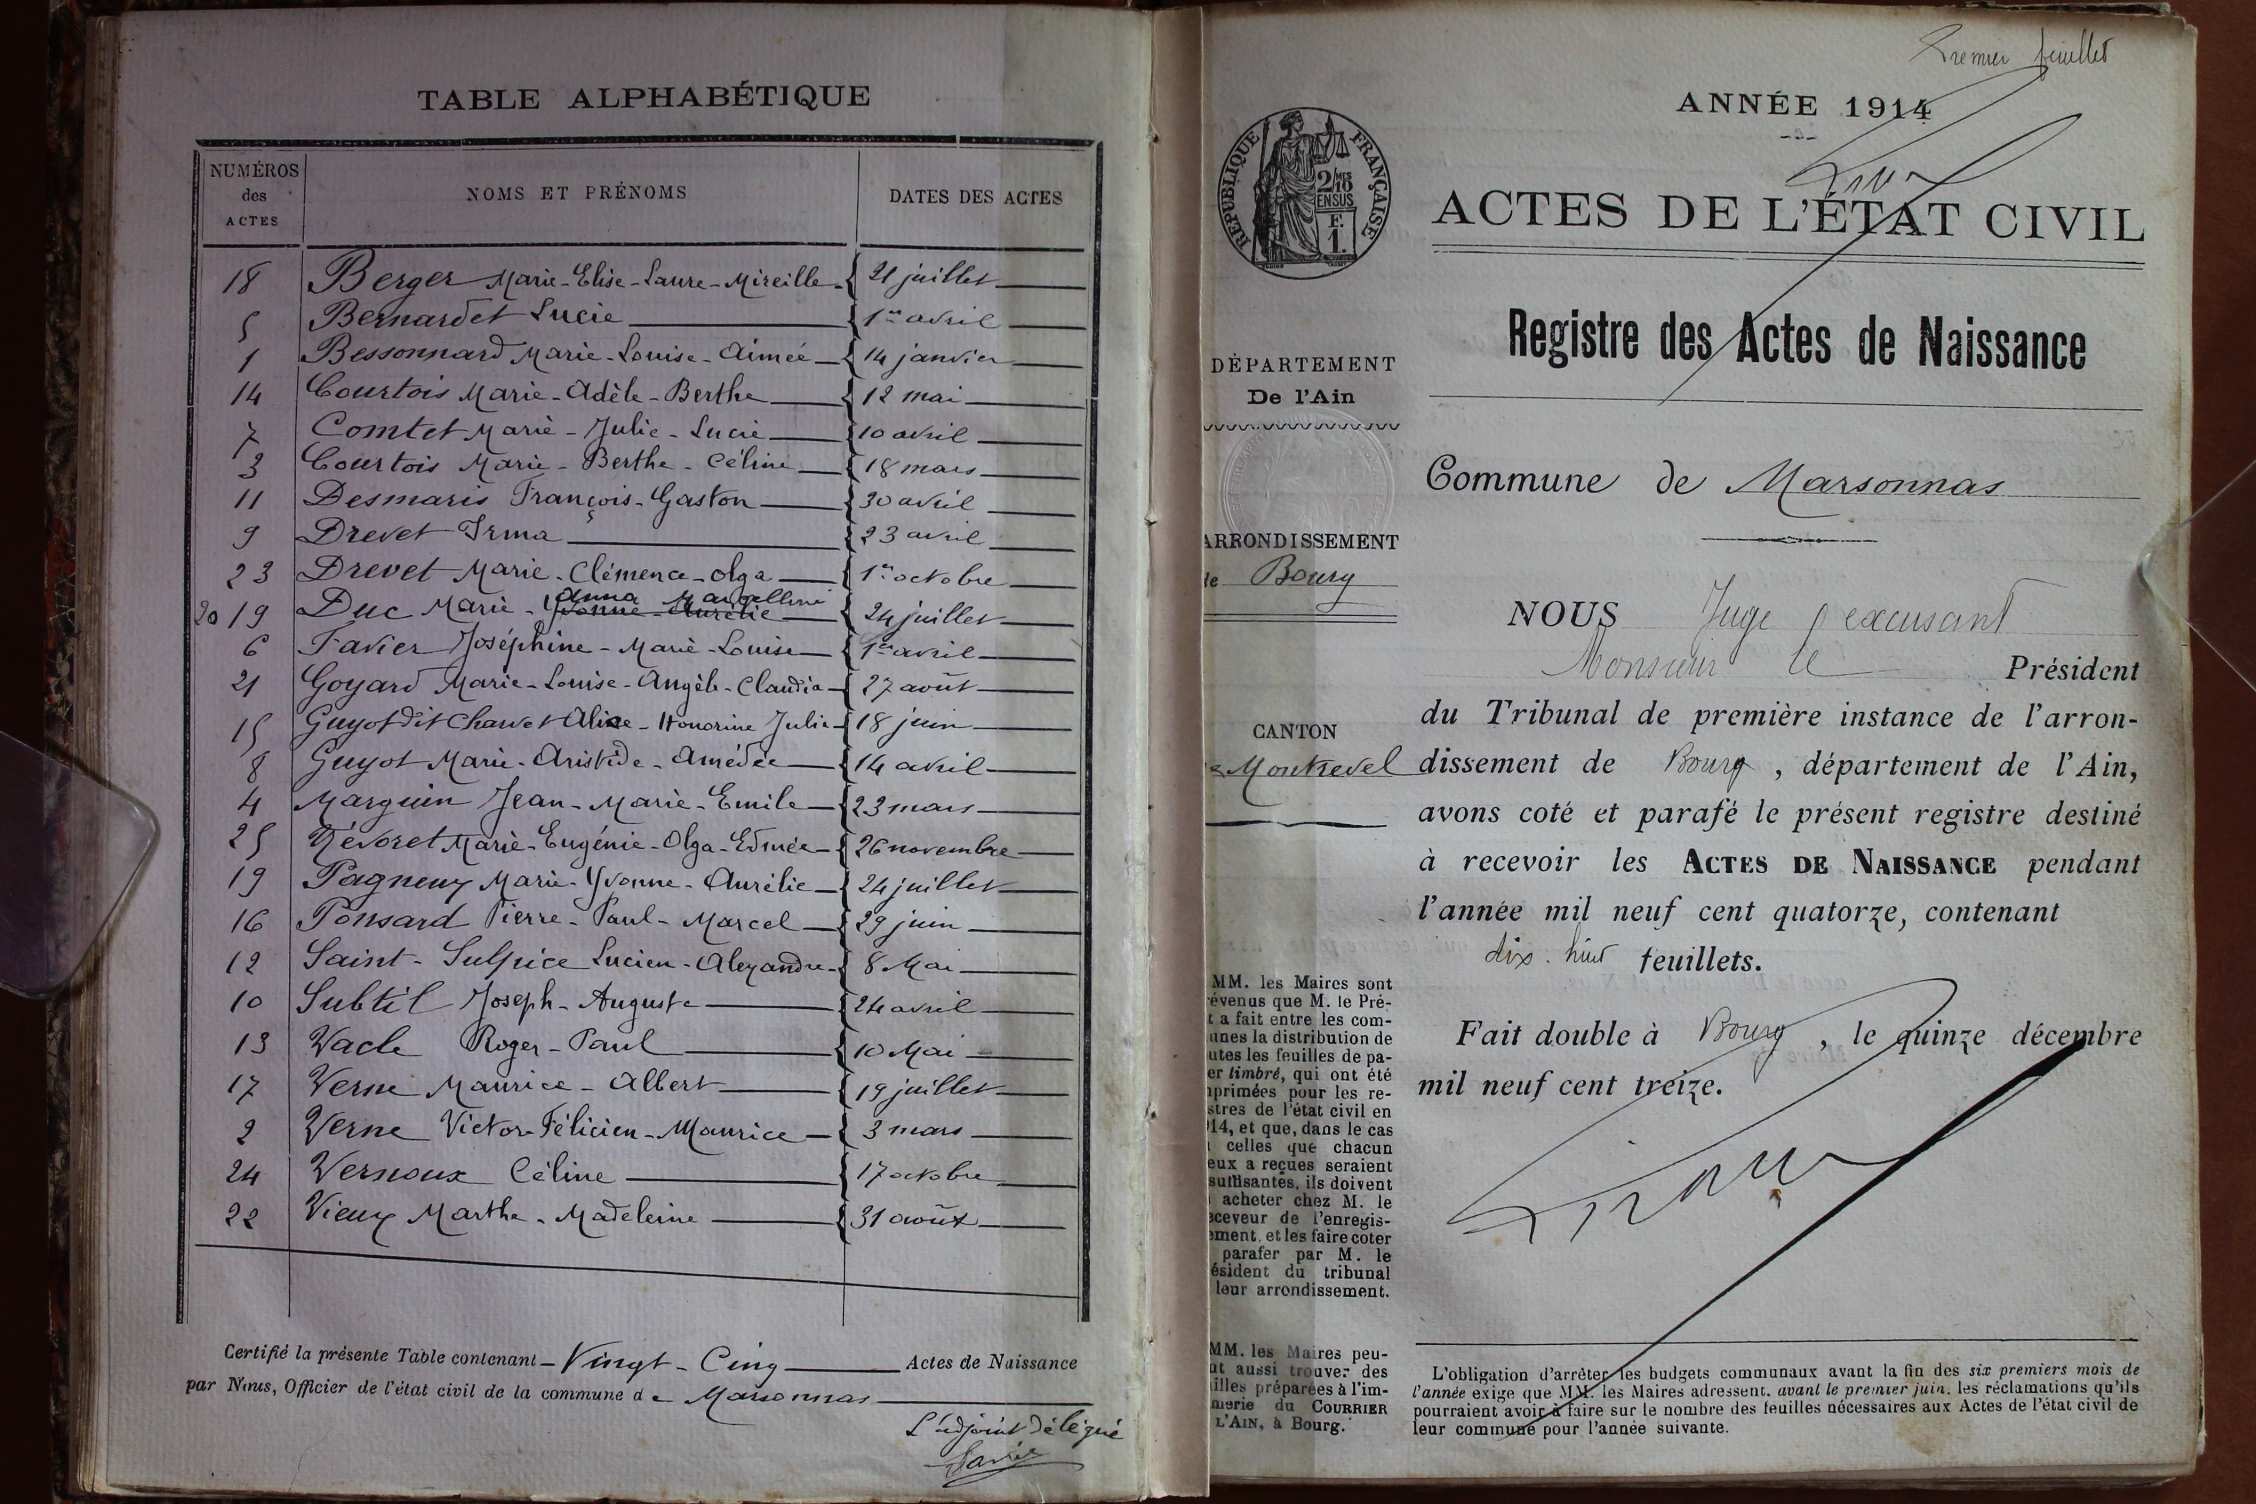 TABLE ALPHABÉTIQUE
NUMÉROS des ACTES
NOMS ET PRÉNOMS
DATES DES ACTES
18 Berger Marie-Elise-Laure-Mireille 21 juillet
5 Bernardet Lucie 1er avril
1 Bessonnard Marie-Louise-Aimée 14 janvier
14 Courtois Marie-Adèle-Berthe 12 mai
7 Comtet Marie-Julie-Lucie 10 avril
3 Courtois Marie-Berthe-Céline 18 mars
11 Desmaris François-Gaston 30 avril
9 Drevet Irma 23 avril
23 Drevet Marie-Clémence-Olga 1er octobre
Anna
20 19 Duc Marie-Yvonne-Aurélie 24 juillet
6 Favier Joséphine-Marie-Louise 1er avril
21 Goyard Marie-Louise-Angèle-Claudia 27 août
15 Guyot dit Charvet Alice-Honorine Julie 18 juin
8 Guyot Marie-Aristide-Amédée 14 avril
4 Marguin Jean-Marie-Emile 23 mars
25 Névoret Marie-Eugénie-Olga-Edmée 26 novembre
19 Pagneux Marie-Yvonne-Aurélie 24 juillet
16 Ponsard Pierre-Paul-Marcel 29 juin
12 Saint-Sulpice Lucien-Alexandre 8 Mai
10 Subtil Joseph-Auguste 24 avril
13 Vacle Roger-Paul 10 Mai
17 Verne Maurice-Albert 19 juillet
2 Verne Victor-Félicien-Maurice 3 mars
24 Vernoux Céline 17 octobre
22 Vieux Marthe-Madeleine 31 août
Certifié la présente Table contenant Vingt-Cinq Actes de Naissance
par Nous, Officier de l'état civil de la commune de Marsonnas
L'adjoint délégué
Premier feuillet
ANNÉE 1914
RÉPUBLIQUE FRANÇAISE
2/10 MES
EN SUS
F.
1.
ACTES DE L'ÉTAT CIVIL
Registre des Actes de Naissance
DÉPARTEMENT
De l'Ain
Commune de Marsonnas
ARRONDISSEMENT
de Bourg
NOUS Juge excusant
Monsieur le Président
du Tribunal de première instance de l'arron-
CANTON
Montrevel
dissement de Bourg, département de l'Ain,
avons coté et parafé le présent registre destiné
à recevoir les ACTES DE NAISSANCE pendant
l'année mil neuf cent quatorze, contenant
dix-huit feuillets.
Fait double à Bourg, le quinze décembre
mil neuf cent treize.
MM. les Maires sont
évenus que M. le Pré-
t a fait entre les com-
unes la distribution de
utes les feuilles de pa-
er timbré, qui ont été
primées pour les re-
stres de l'état civil en
14, et que, dans le cas
celles que chacun
eux a reçues seraient
suffisantes, ils doivent
acheter chez M. le
ceveur de l'enregis-
ement, et les faire coter
parafer par M. le
ésident du tribunal
leur arrondissement.
MM. les Maires peu-
nt aussi trouver des
illes préparées à l'im-
merie du COURRIER
L'AIN, à Bourg.
L'obligation d'arrêter les budgets communaux avant la fin des six premiers mois de
l'année exige que MM. les Maires adressent, avant le premier juin, les réclamations qu'ils
pourraient avoir à faire sur le nombre des feuilles nécessaires aux Actes de l'état civil de
leur commune pour l'année suivante.